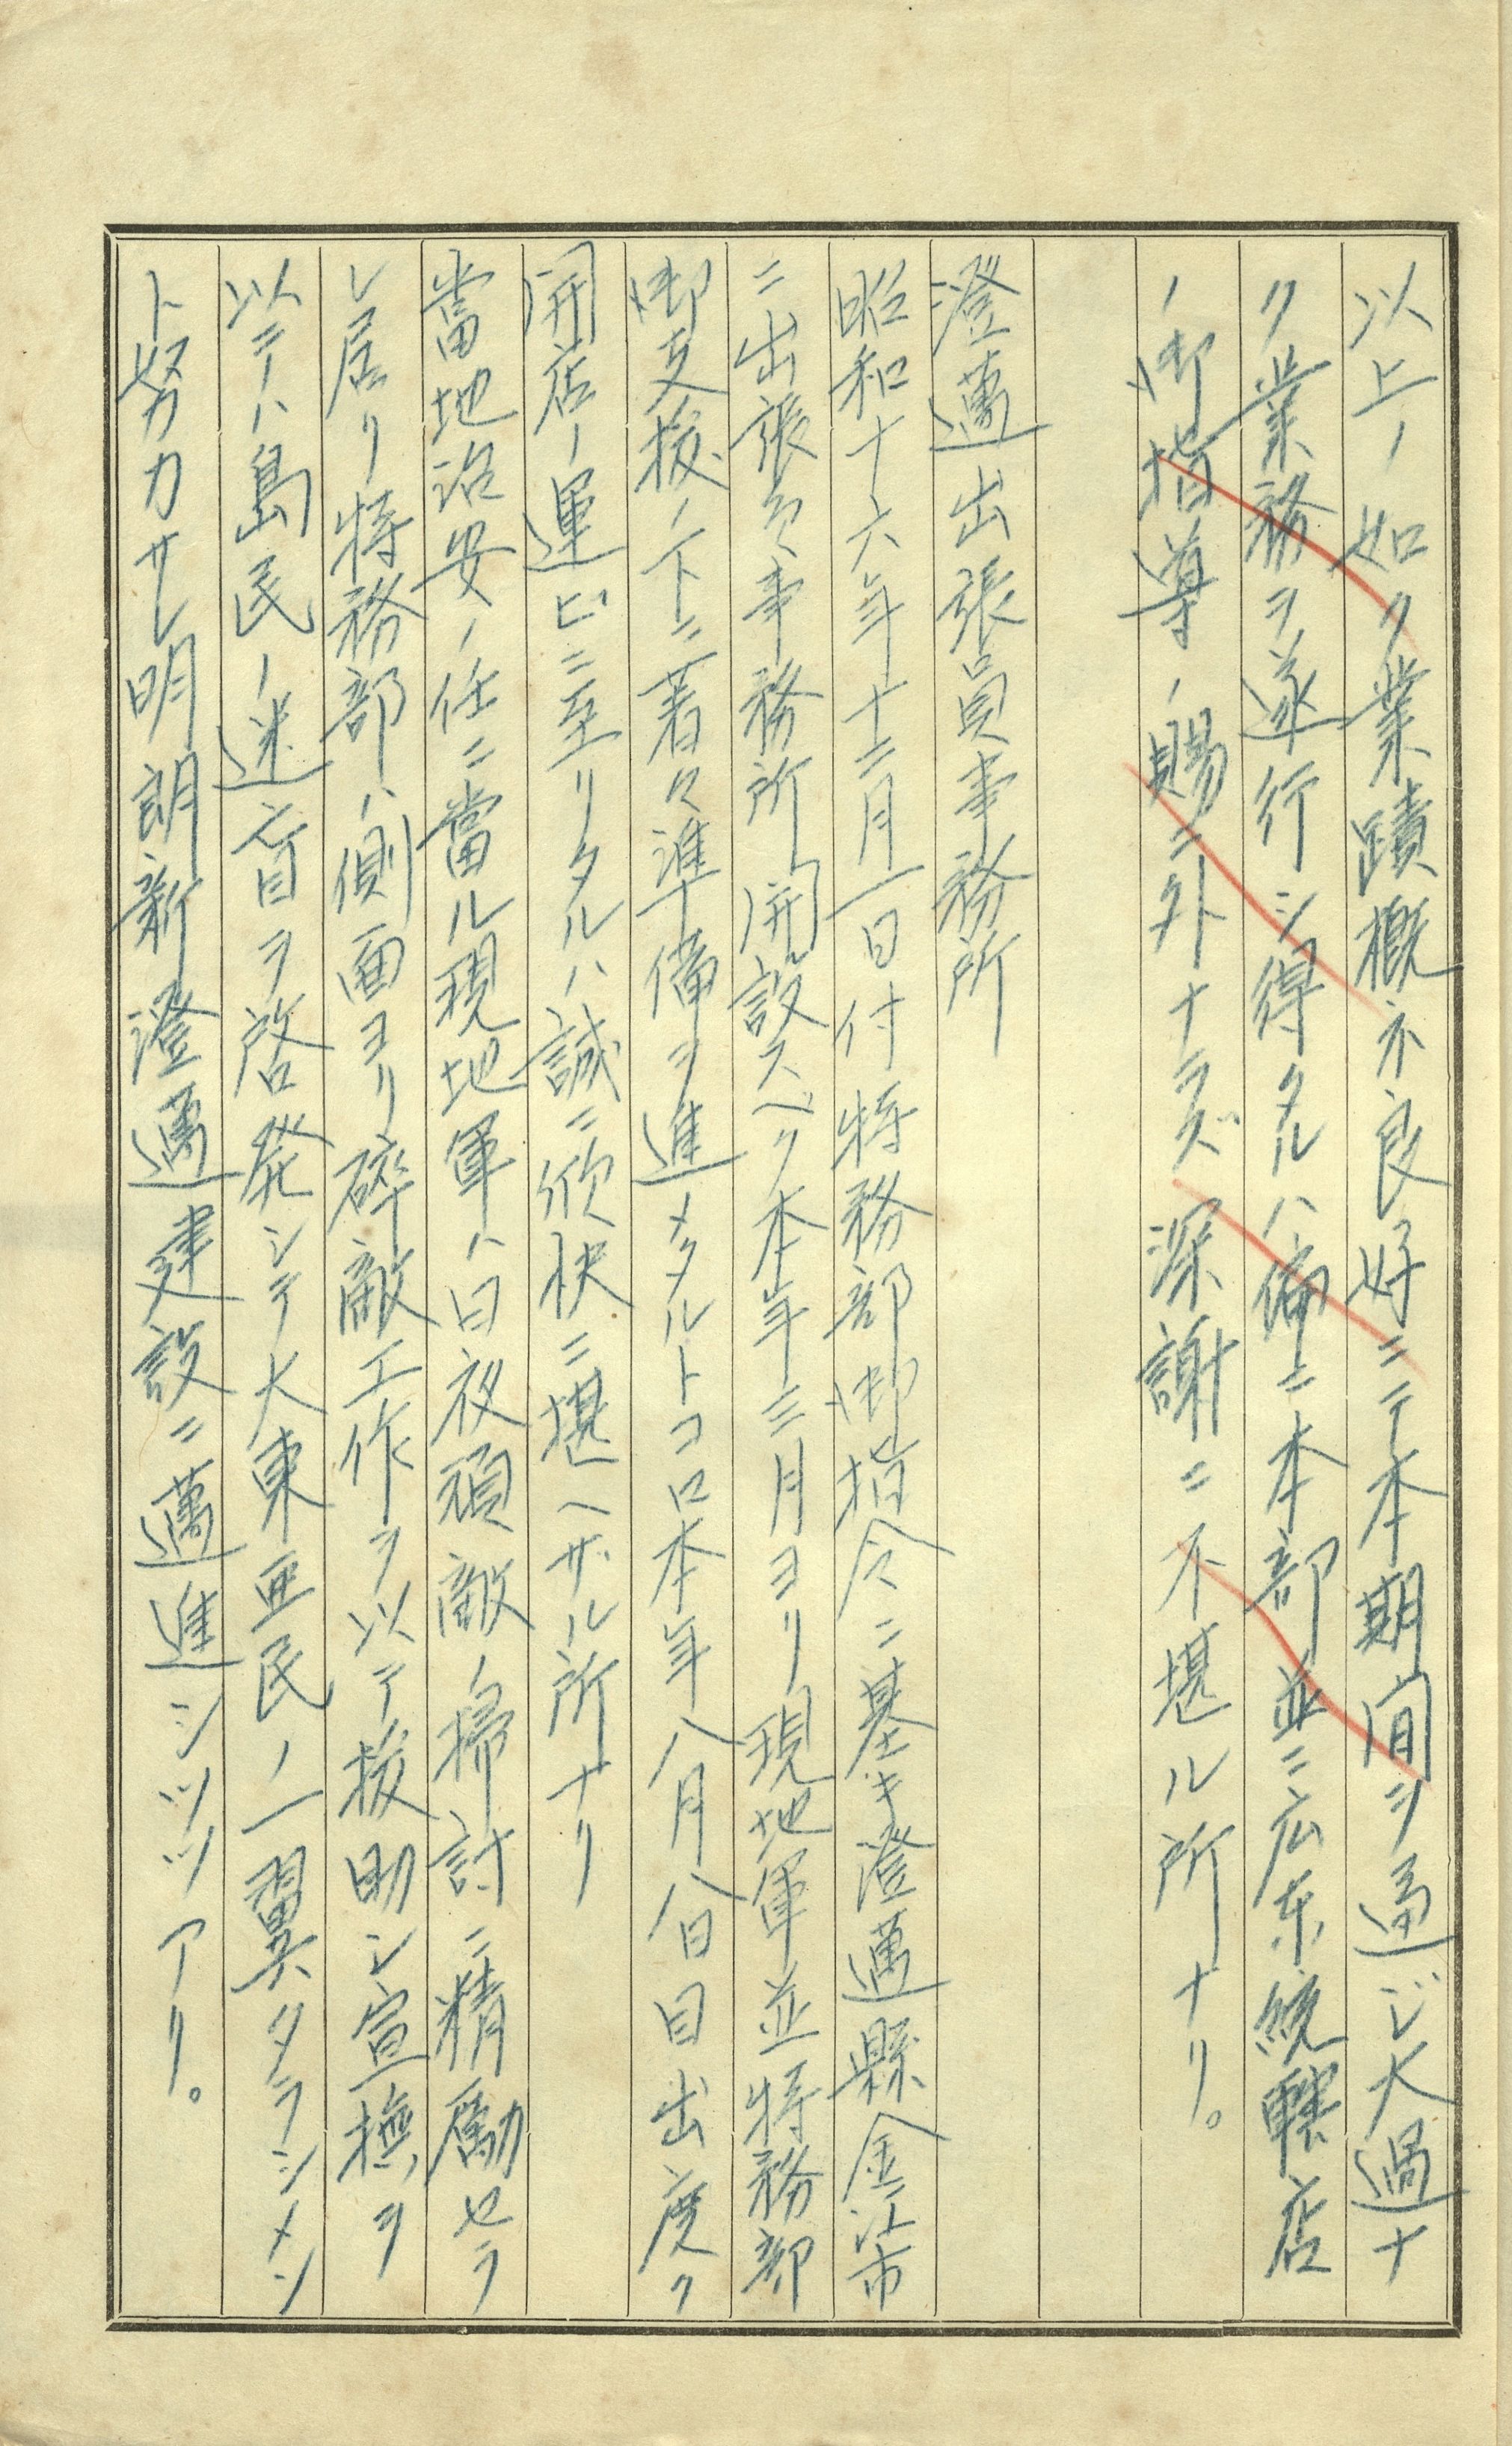 以上ノ如ク業蹟概ネ良好ニテ本期間ヲ通ジ大過ナ
ク業務ヲ遂行シ得タルハ偏ニ本部並ニ広东統轄店
ノ御指導ノ賜ニ外ナラズ深謝ニ不堪ル所ナリ。
澄邁出張員事務所
昭和十六年十二月一日付特務部御指令ニ基キ澄邁縣金江市
ニ出張員事務所開設スベク本年三月ヨリ現地軍並特務部
御支援ノ下ニ着々準備ヲ進メタルトコロ本年八月八日目出度ク
開店ノ運ビニ至リタルハ誠ニ欣快ニ堪ヘザル所ナリ
當地治安ノ任ニ當ル現地軍ハ日夜頑敵ノ掃討ニ精励セラ
レ居リ特務部ハ側面ヨリ碎敵工作ヲ以テ援助シ宣撫ヲ
以テハ島民ノ迷盲ヲ啓発シテ大東亜民ノ一翼タラシメン
ト努力サレ明朗新澄邁建設ニ邁進シツツアリ。